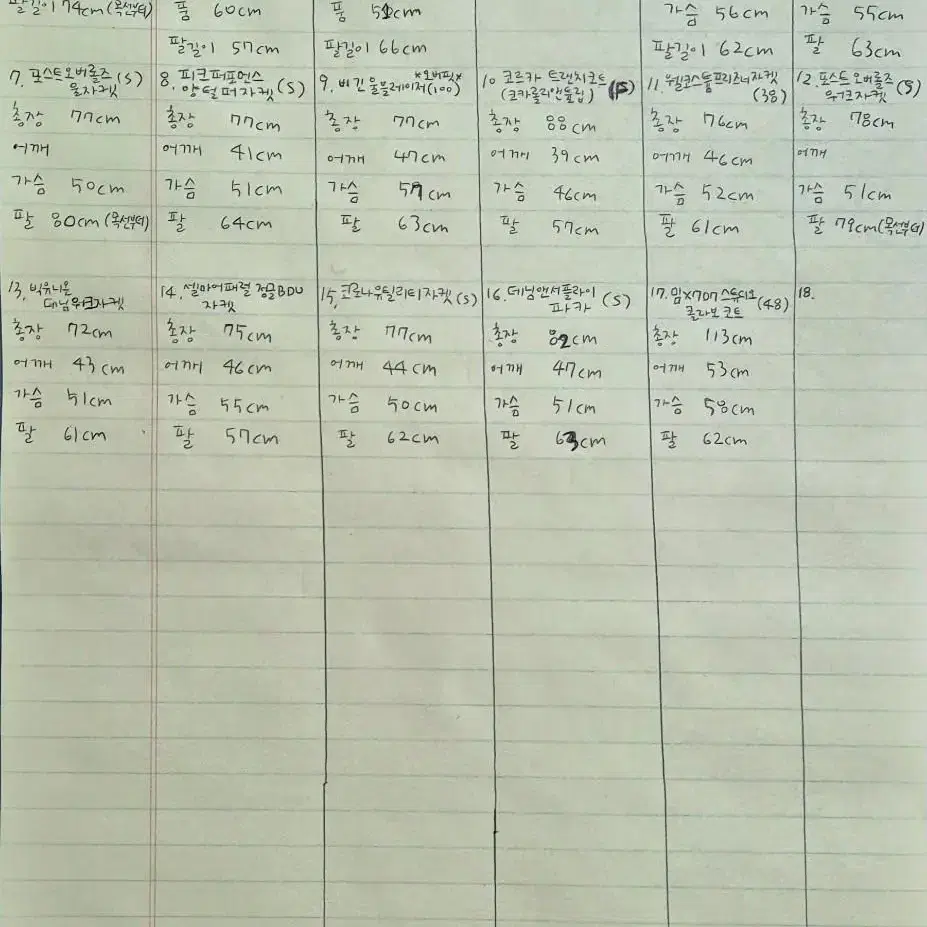 팔길이 74cm (목선부터)
품 60cm
팔길이 57cm
품 51cm
팔길이 66cm
가슴 56cm
팔길이 62cm
가슴 55cm
팔 63cm
7. 포스트오버롤즈 (S)
울자켓
총장 77cm
어깨
가슴 50cm
팔 80cm (목선부터)
8. 피크퍼포먼스
양털퍼자켓 (S)
총장 77cm
어깨 41cm
가슴 51cm
팔 64cm
*오버핏*
9. 비긴 울블레이저(100)
총장 77cm
어깨 47cm
가슴 57cm
팔 63cm
10. 코르카 트랜치코트
(코카롤리안튤립)
총장 88cm
어깨 39cm
가슴 46cm
팔 57cm
11. 웰코스톰프리즈너자켓
(38)
총장 76cm
어깨 46cm
가슴 52cm
팔 61cm
12. 포스트 오버롤즈
워크자켓 (S)
총장 78cm
어깨
가슴 51cm
팔 79cm(목선부터)
13. 빅유니온
데님워크자켓
총장 72cm
어깨 43cm
가슴 51cm
팔 61cm
14. 셀마어패럴 정글BDU
자켓
총장 75cm
어깨 46cm
가슴 55cm
팔 57cm
15. 코로나유틸리티자켓(S)
총장 77cm
어깨 44cm
가슴 50cm
팔 62cm
16. 데님앤서플라이
파카 (S)
총장 82cm
어깨 47cm
가슴 51cm
팔 63cm
17. 밈X707스튜디오
콜라보 코트 (48)
총장 113cm
어깨 53cm
가슴 58cm
팔 62cm
18.